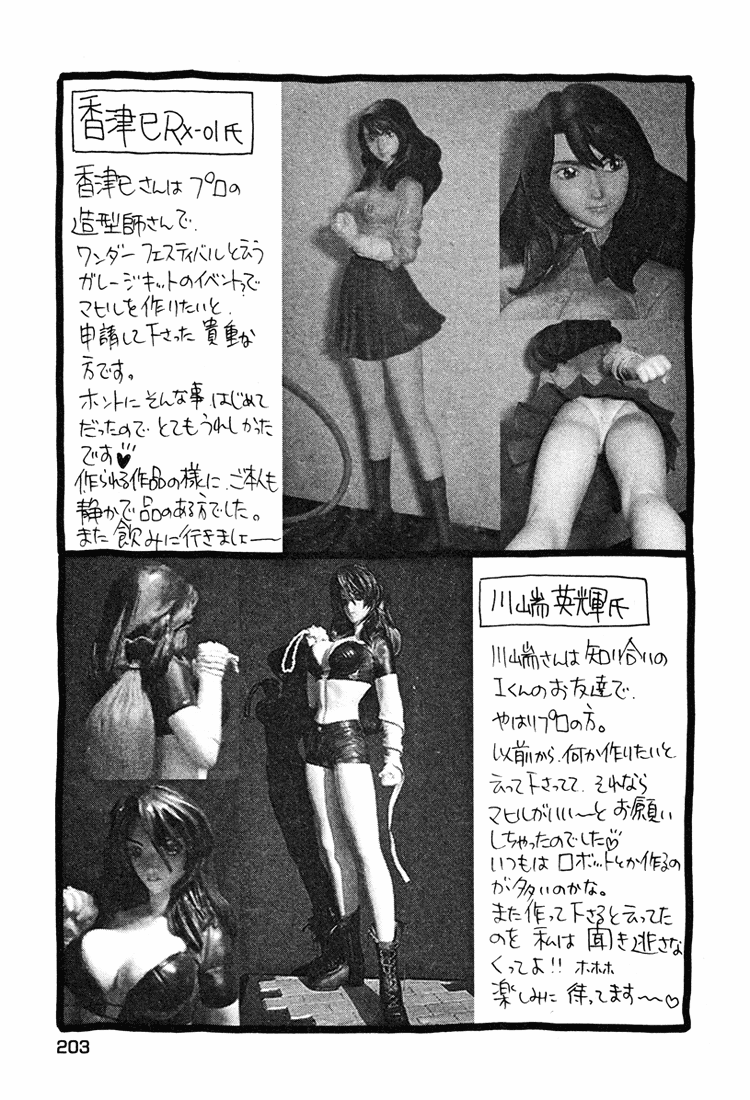 香津巳RX-01氏
香津巳さんは プロの
造型師さんで、
ワンダーフェスティバルと云う
ガレージキットのイベント?で
マヒルを作りたいと、
申請して下さった 貴重な
方です。
ホントに そんな事 はじめて
だったので とてもうれしかった
です♥
作られる作品の様に、ご本人も
静かで 品のある方でした。
また 飲みに行きましょ〜〜
川端 英輝氏
川端さんは 知り合いの
Iくんのお友達で、
やはりプロの方。
以前から、何か作りたいと
云って下さってて、それなら
マヒルがいい〜と お願い
しちゃったのでした♡
いつもは ロボットとか作るの
が多いのかな。
また 作って下さると云ってた
のを 私は 聞き逃さな
くってよ!! ホホホ
楽しみに 待ってます〜〜♡
203